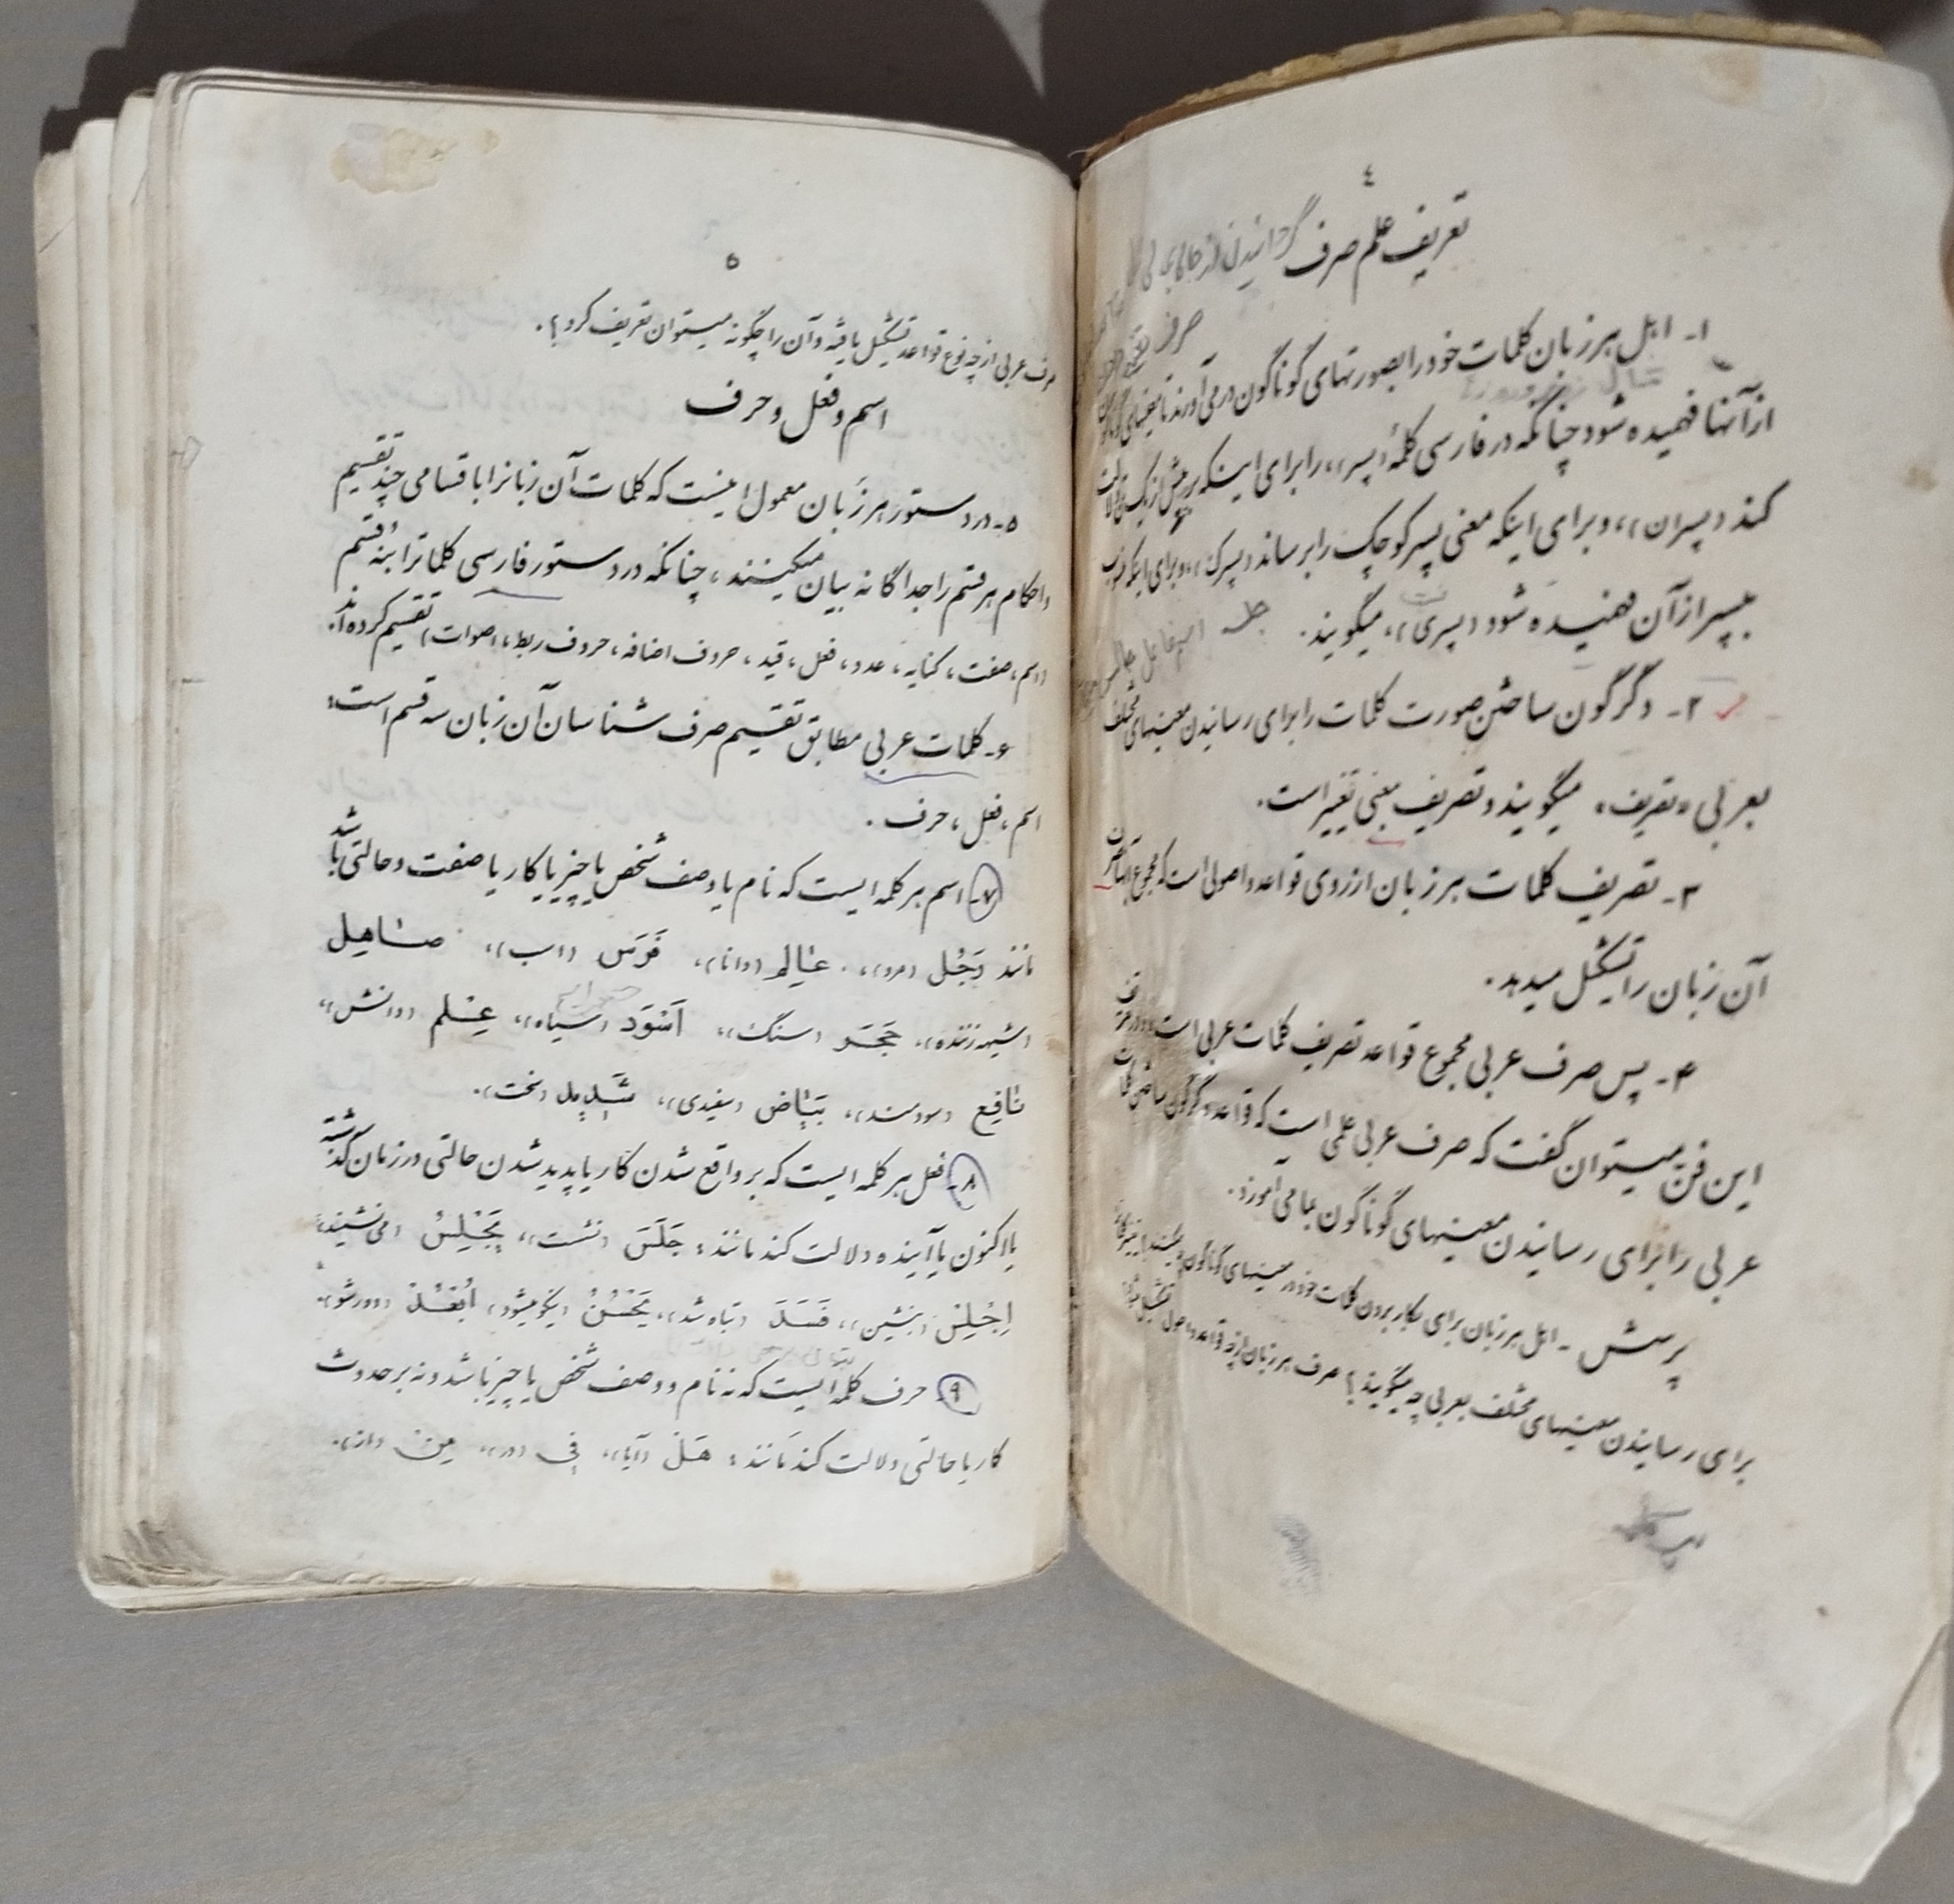 ٤
تعریف علم صرف گردانیدن از حالی بحالی
صرف
۱- اهل هر زبان کلمات خود را بصورتهای گوناگون درمی‌آورند تا معنیهای گوناگون
از آنها فهمیده شود چنانکه در فارسی کلمهٔ «پسر» را برای اینکه بر بیش از یک تن دلالت
کند «پسران»، و برای اینکه معنی پسر کوچک را برساند «پسرک»، و برای اینکه
بپسر از آن فهمیده شود «پسری»، میگویند.
۲- دگرگون ساختن صورت کلمات را برای رسانیدن معنیهای مختلف
بعربی «تصریف» میگویند و تصریف بمعنی تغییر است.
۳- تصریف کلمات هر زبان از روی قواعد و اصولی است که مجموع آنها صرف
آن زبان را تشکیل میدهد.
۴- پس صرف عربی مجموع قواعد تصریف کلمات عربی است و در تعریف
این فن میتوان گفت که صرف عربی علمی است که قواعد دگرگون ساختن کلمات
عربی را برای رسانیدن معنیهای گوناگون بما می‌آموزد.
پرسش - اهل هر زبان برای بکار بردن کلمات خود در معنیهای گوناگون چه میکنند؟
برای رسانیدن معنیهای مختلف بعربی چه میگویند؟ صرف هر زبان از چه قواعد و اصول تشکیل میشود؟
۵
صرف عربی از چه نوع قواعد تشکیل یافته و آن را چگونه میتوان تعریف کرد؟.
اسم و فعل و حرف
۵- در دستور هر زبان معمول اینست که کلمات آن زبانرا باقسامی چند تقسیم
و احکام هر قسم را جداگانه بیان میکنند، چنانکه در دستور فارسی کلماترا بنه قسم
(اسم، صفت، کنایه، عدد، فعل، قید، حروف اضافه، حروف ربط، اصوات) تقسیم کرده‌اند.
۶- کلمات عربی مطابق تقسیم صرف شناسان آن زبان سه قسم است:
اسم، فعل، حرف.
۷- اسم هر کلمه ایست که نام یا وصف شخص یا چیز یا کار یا صفت و حالتی باشد
مانند رَجُل «مرد»، عٰالِم «دانا»، فَرَس «اسب»، صٰاهِل
«شیهه زننده»، حَجَر «سنگ»، اَسْوَد «سیاه»، عِلم «دانش»،
نٰافِع «سودمند»، بَیٰاض «سفیدی»، شَدید «سخت».
۸- فعل هر کلمه ایست که بر واقع شدن کار یا پدید شدن حالتی در زمان گذشته
یا اکنون یا آینده دلالت کند مانند: جَلَسَ «نشست»، یَجْلِسُ «می نشیند»،
اِجْلِسْ «بنشین»، فَسَدَ «تباه شد»، یَحْسُنُ «نیکو میشود»، اُبْعُدْ «دور شو».
۹- حرف کلمه ایست که نه نام و وصف شخص یا چیز باشد و نه بر حدوث
کار یا حالتی دلالت کند مانند: هَلْ «آیا»، فی «در»، مِنْ «از».